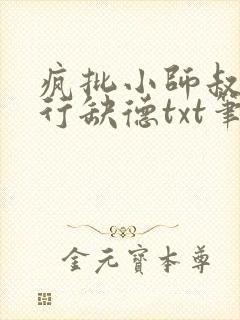 疯批小师叔
行缺德txt笔
金元宝本尊